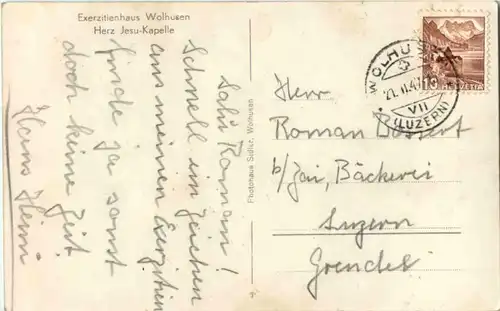 Exerzitienhaus Wolhusen
Herz Jesu-Kapelle
Salü Roman!
Schnell ein Zeichen
aus meinen Exerzitien
finde ja sonst
doch keine Zeit
Hans Heini
Photohaus Sidler, Wolhusen
WOLHUSEN
21.II.4
VII
(LUZERN)
10 HELVETIA
Herr
Roman Bossert
b/ Bäckerei
Luzern
Grendel